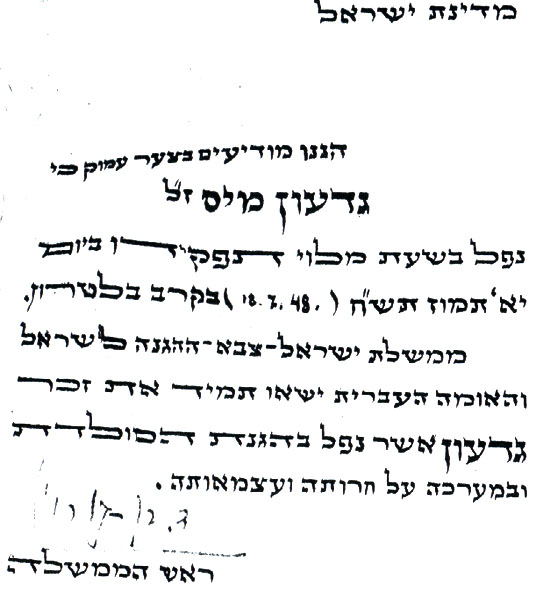 מדינת ישראל
הננו מודיעים בצער עמוק כי
גדעון מיס ז"ל
נפל בשעת מלוי תפקידו ביום
יא' תמוז תש"ח (18.7.48.) בקרב בלטרון.
ממשלת ישראל-צבא-ההגנה לישראל
והאומה העברית ישאו תמיד את זכר
גדעון אשר נפל בהגנת המולדת
ובמערכה על חרותה ועצמאותה.
ד. בן-גוריון
ראש הממשלה